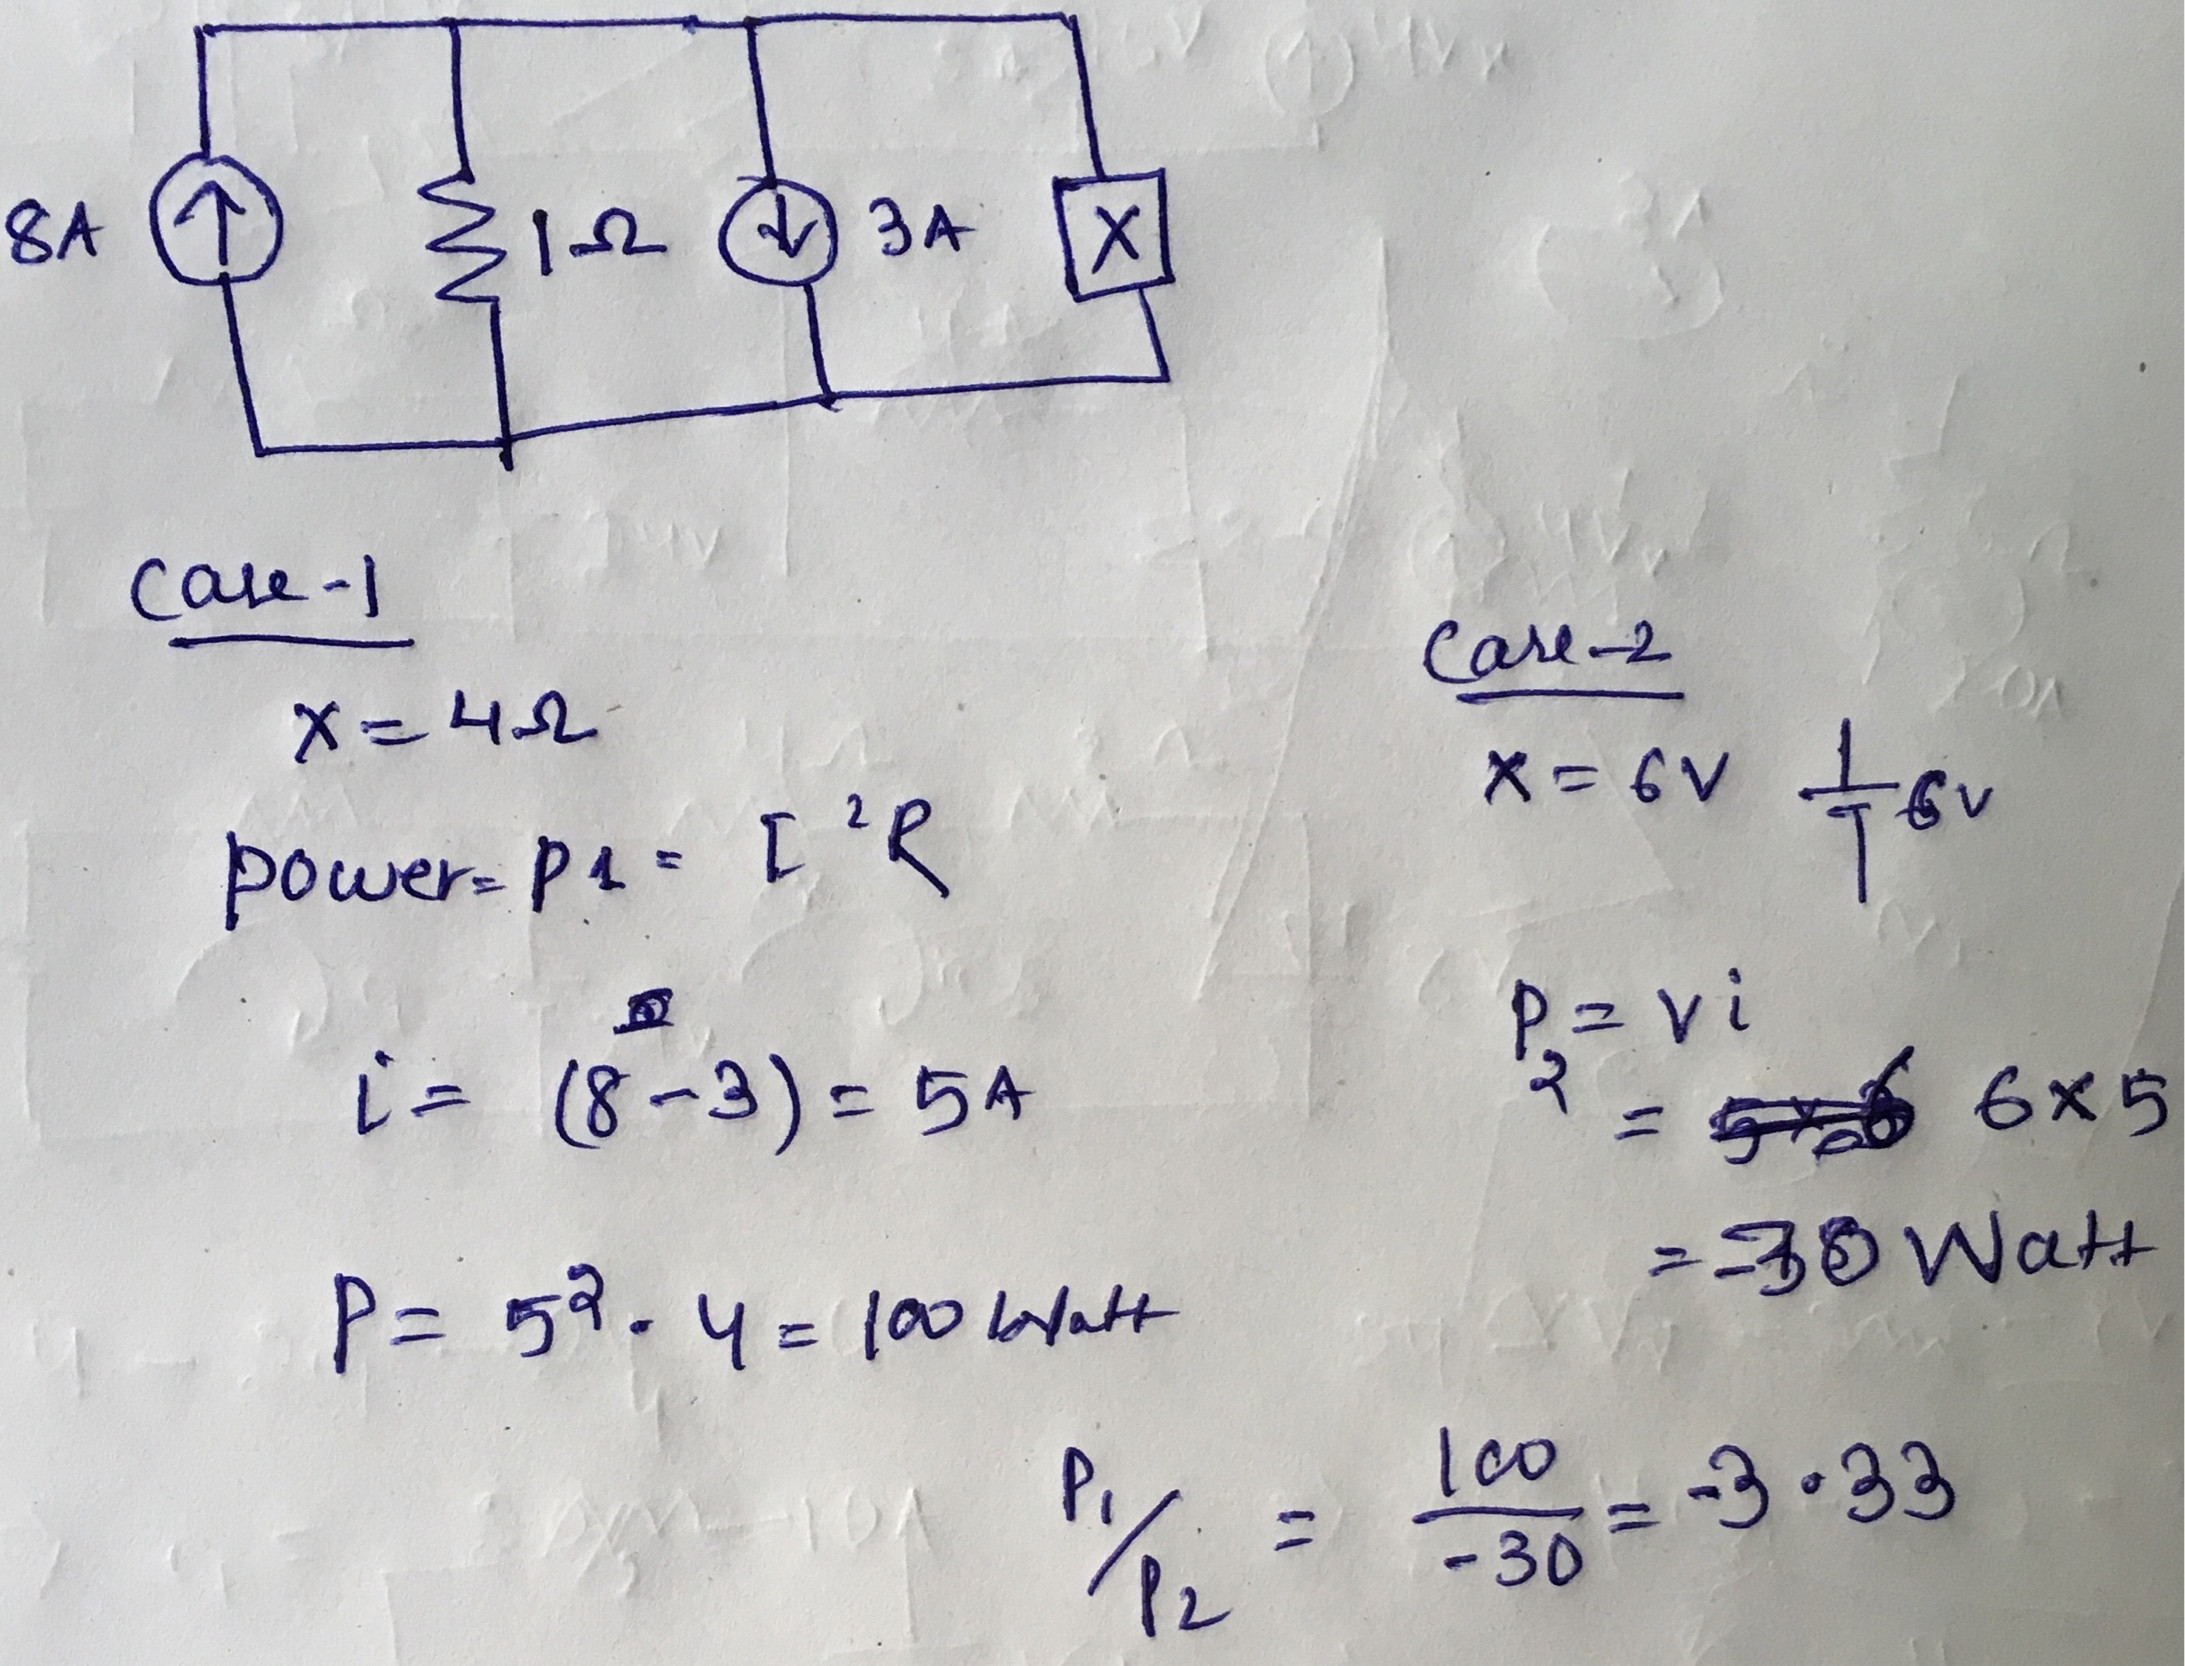 8A 1Ω 3A X
Case-1
X = 4Ω
power = P1 = I²R
i = (8-3) = 5A
P = 5² · 4 = 100 Watt
Case-2
X = 6V 6V
P₂ = Vi
= 6×5
= -30 Watt
P₁/P₂ = 100/-30 = -3.33